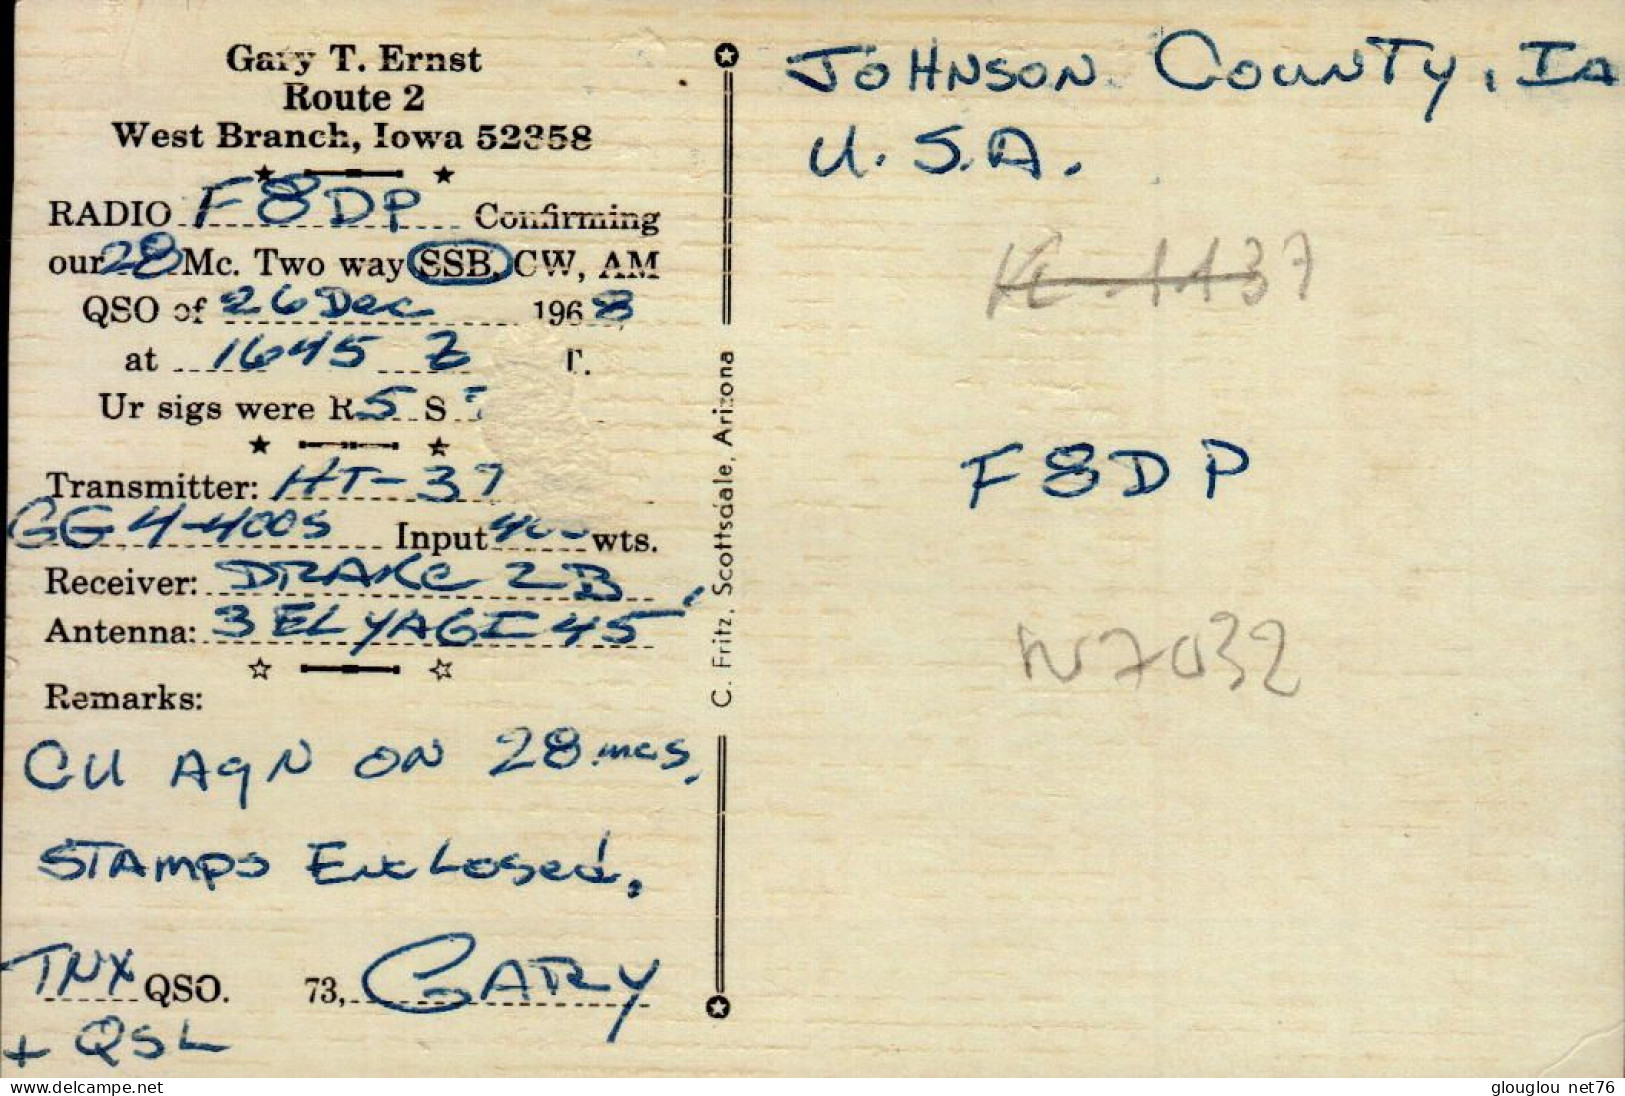 Gary T. Ernst
Route 2
West Branch, Iowa 52358
RADIO F8DP Confirming
our 28 Mc. Two way SSB, CW, AM
QSO of 26 Dec 1968
at 1645 Z T.
Ur sigs were R 5 S
Transmitter: HT-37
GG 4-400S Input 400 wts.
Receiver: DRAKE 2B
Antenna: 3 EL YAGI 45'
Remarks:
CU AgN ON 28 mcs.
STAMPS Enclosed.
TNX QSO. 73, GARY
+ QSL
C. Fritz, Scottsdale, Arizona
JOHNSON COUNTY, IA
U.S.A.
F8DP
www.delcampe.net
glouglou net76